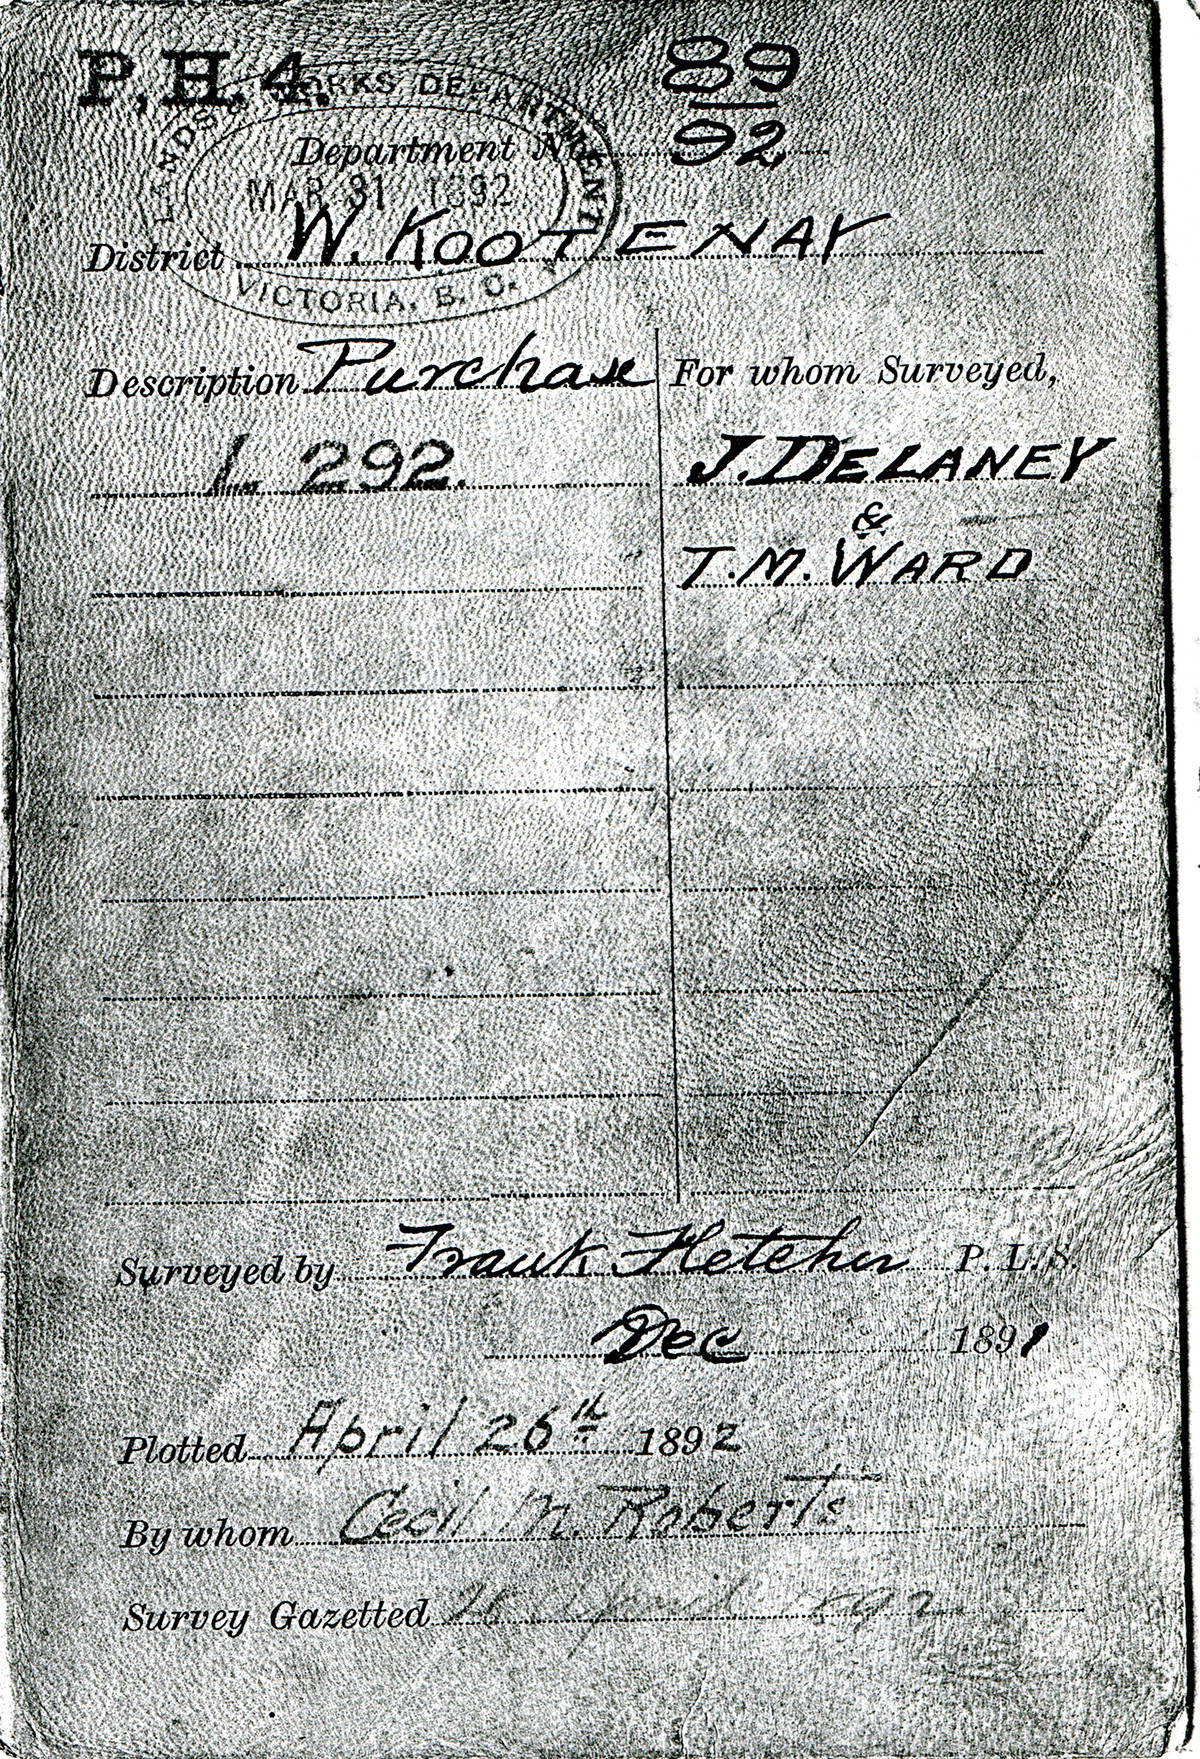 P.H.4.
89
92
LANDS & WORKS DEPARTMENT
Department No.
MAR 31 1892
VICTORIA, B. C.
District W. KOOTENAY
Description Purchase
L 292.
For whom Surveyed,
J. DELANEY
&
T. M. WARD
Surveyed by Frank Fletcher P. L. S.
Dec 1891
Plotted April 26th 1892
By whom Cecil M. Roberts
Survey Gazetted April 1892